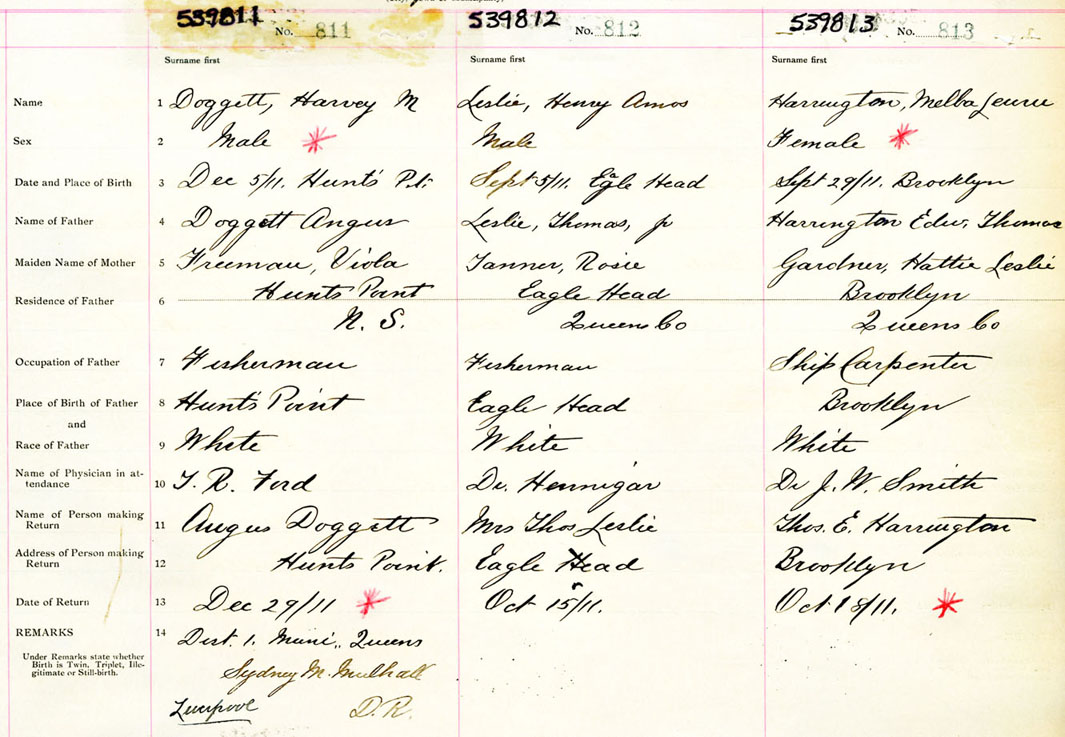 539811 No. 811 539812 No. 812 539813 No. 813
Surname first Surname first Surname first
Name 1 Doggett, Harvey M Leslie, Henry Amos Harrington, Melba
Sex 2 Male Male Female
Date and Place of Birth 3 Dec 5/11. Hunt's Pt. Sept 5/11. Egle Head Sept 29/11. Brooklyn
Name of Father 4 Doggett Angus Leslie, Thomas, jr Harrington Edw. Thomas
Maiden Name of Mother 5 Freeman, Viola Tanner, Rosie Gardner, Hattie Leslie
Residence of Father 6 Hunts Point Eagle Head Brooklyn
N. S. Queens Co Queens Co
Occupation of Father 7 Fisherman Fisherman Ship Carpenter
Place of Birth of Father 8 Hunt's Point Eagle Head Brooklyn
and
Race of Father 9 White White White
Name of Physician in at-
tendance 10 J. R. Ford Dr. Hennigar Dr J. W. Smith
Name of Person making
Return 11 Angus Doggett Mrs Thos Leslie Thos. E. Harrington
Address of Person making
Return 12 Hunts Point. Eagle Head Brooklyn
Date of Return 13 Dec 29/11 Oct 15/11. Oct 18/11.
REMARKS 14 Dist. 1. Muni., Queens
Under Remarks state whether
Birth is Twin, Triplet, Ille-
gitimate or Still-birth.
Sydney M. Mulhall
Liverpool D. R.